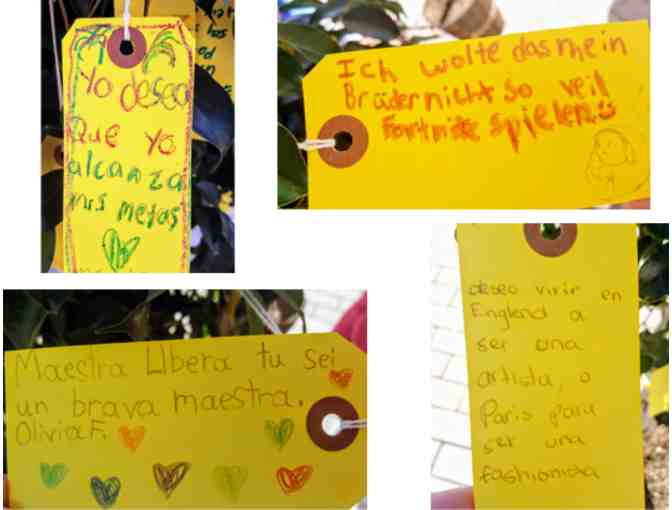 Yo deseo
Que yo
alcanza
mis metas
Ich wolte das mein
Brüder nicht so veil
Fortnite spielen
Maestra LIbera tu sei
un brava maestra.
Olivia F.
deseo vivir en
England a
ser una
artista, o
Paris para
ser una
fashionista